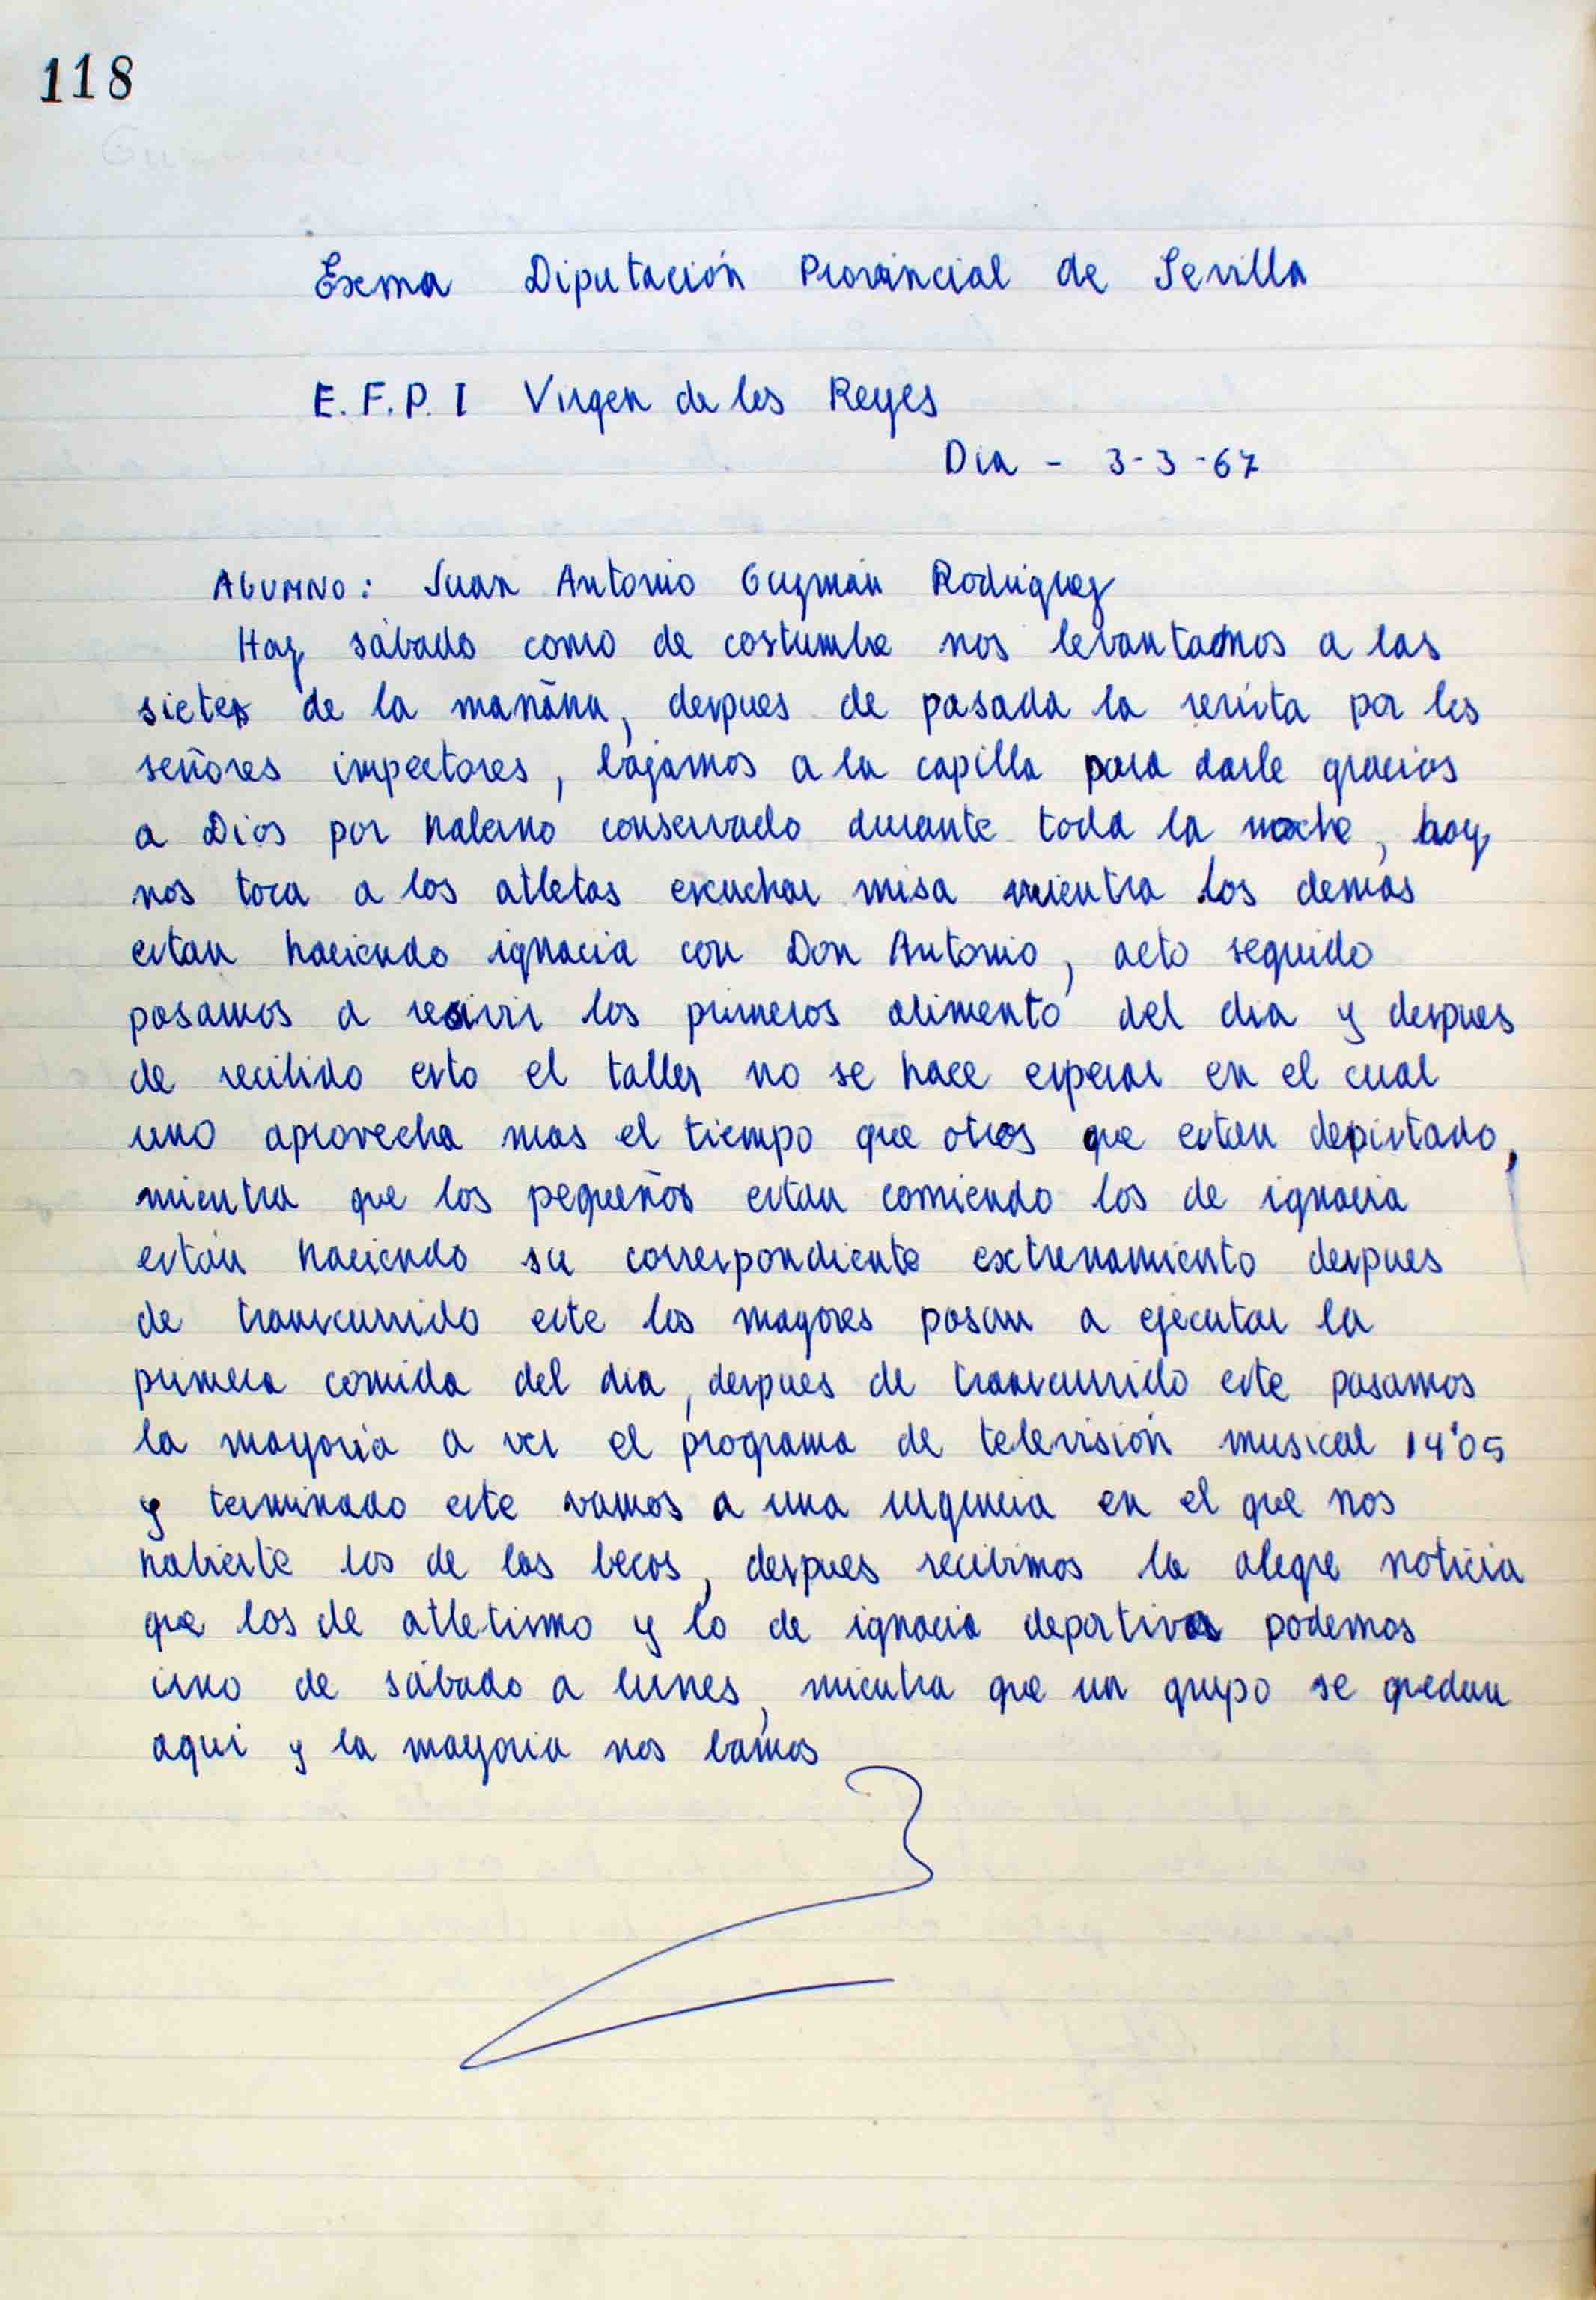 118
Exma Diputación Provincial de Sevilla
E. F. P. I Virgen de los Reyes
Dia - 3-3-67
ALUMNO: Juan Antonio Guzmán Rodriguez
Hoy sábado como de costumbre nos levantamos a las
siete de la mañana, despues de pasada la revista por los
señores inspectores, bajamos a la capilla para darle gracias
a Dios por haberno conservado durante toda la noche, hoy
nos toca a los atletas escuchar misa mientra los demas
estan haciendo ignacia con Don Antonio, acto seguido
pasamos a recivir los primeros alimento del dia y despues
de recibido esto el taller no se hace esperar en el cual
uno aprovecha mas el tiempo que otros que estan depistado,
mientra que los pequeños estan comiendo los de ignacia
están haciendo su correspondiente extrenamiento despues
de transcurrido este los mayores pasan a ejecutar la
primera comida del dia, despues de transcurrido este pasamos
la mayoria a ver el programa de televisión musical 14'05
y terminado este vamos a una urgencia en el que nos
habierte los de las becas, despues recibimos la alegre noticia
que los de atletismo y lo de ignacia deportivas podemos
irno de sábado a lunes, mientra que un grupo se quedan
aqui y la mayoria nos bamos